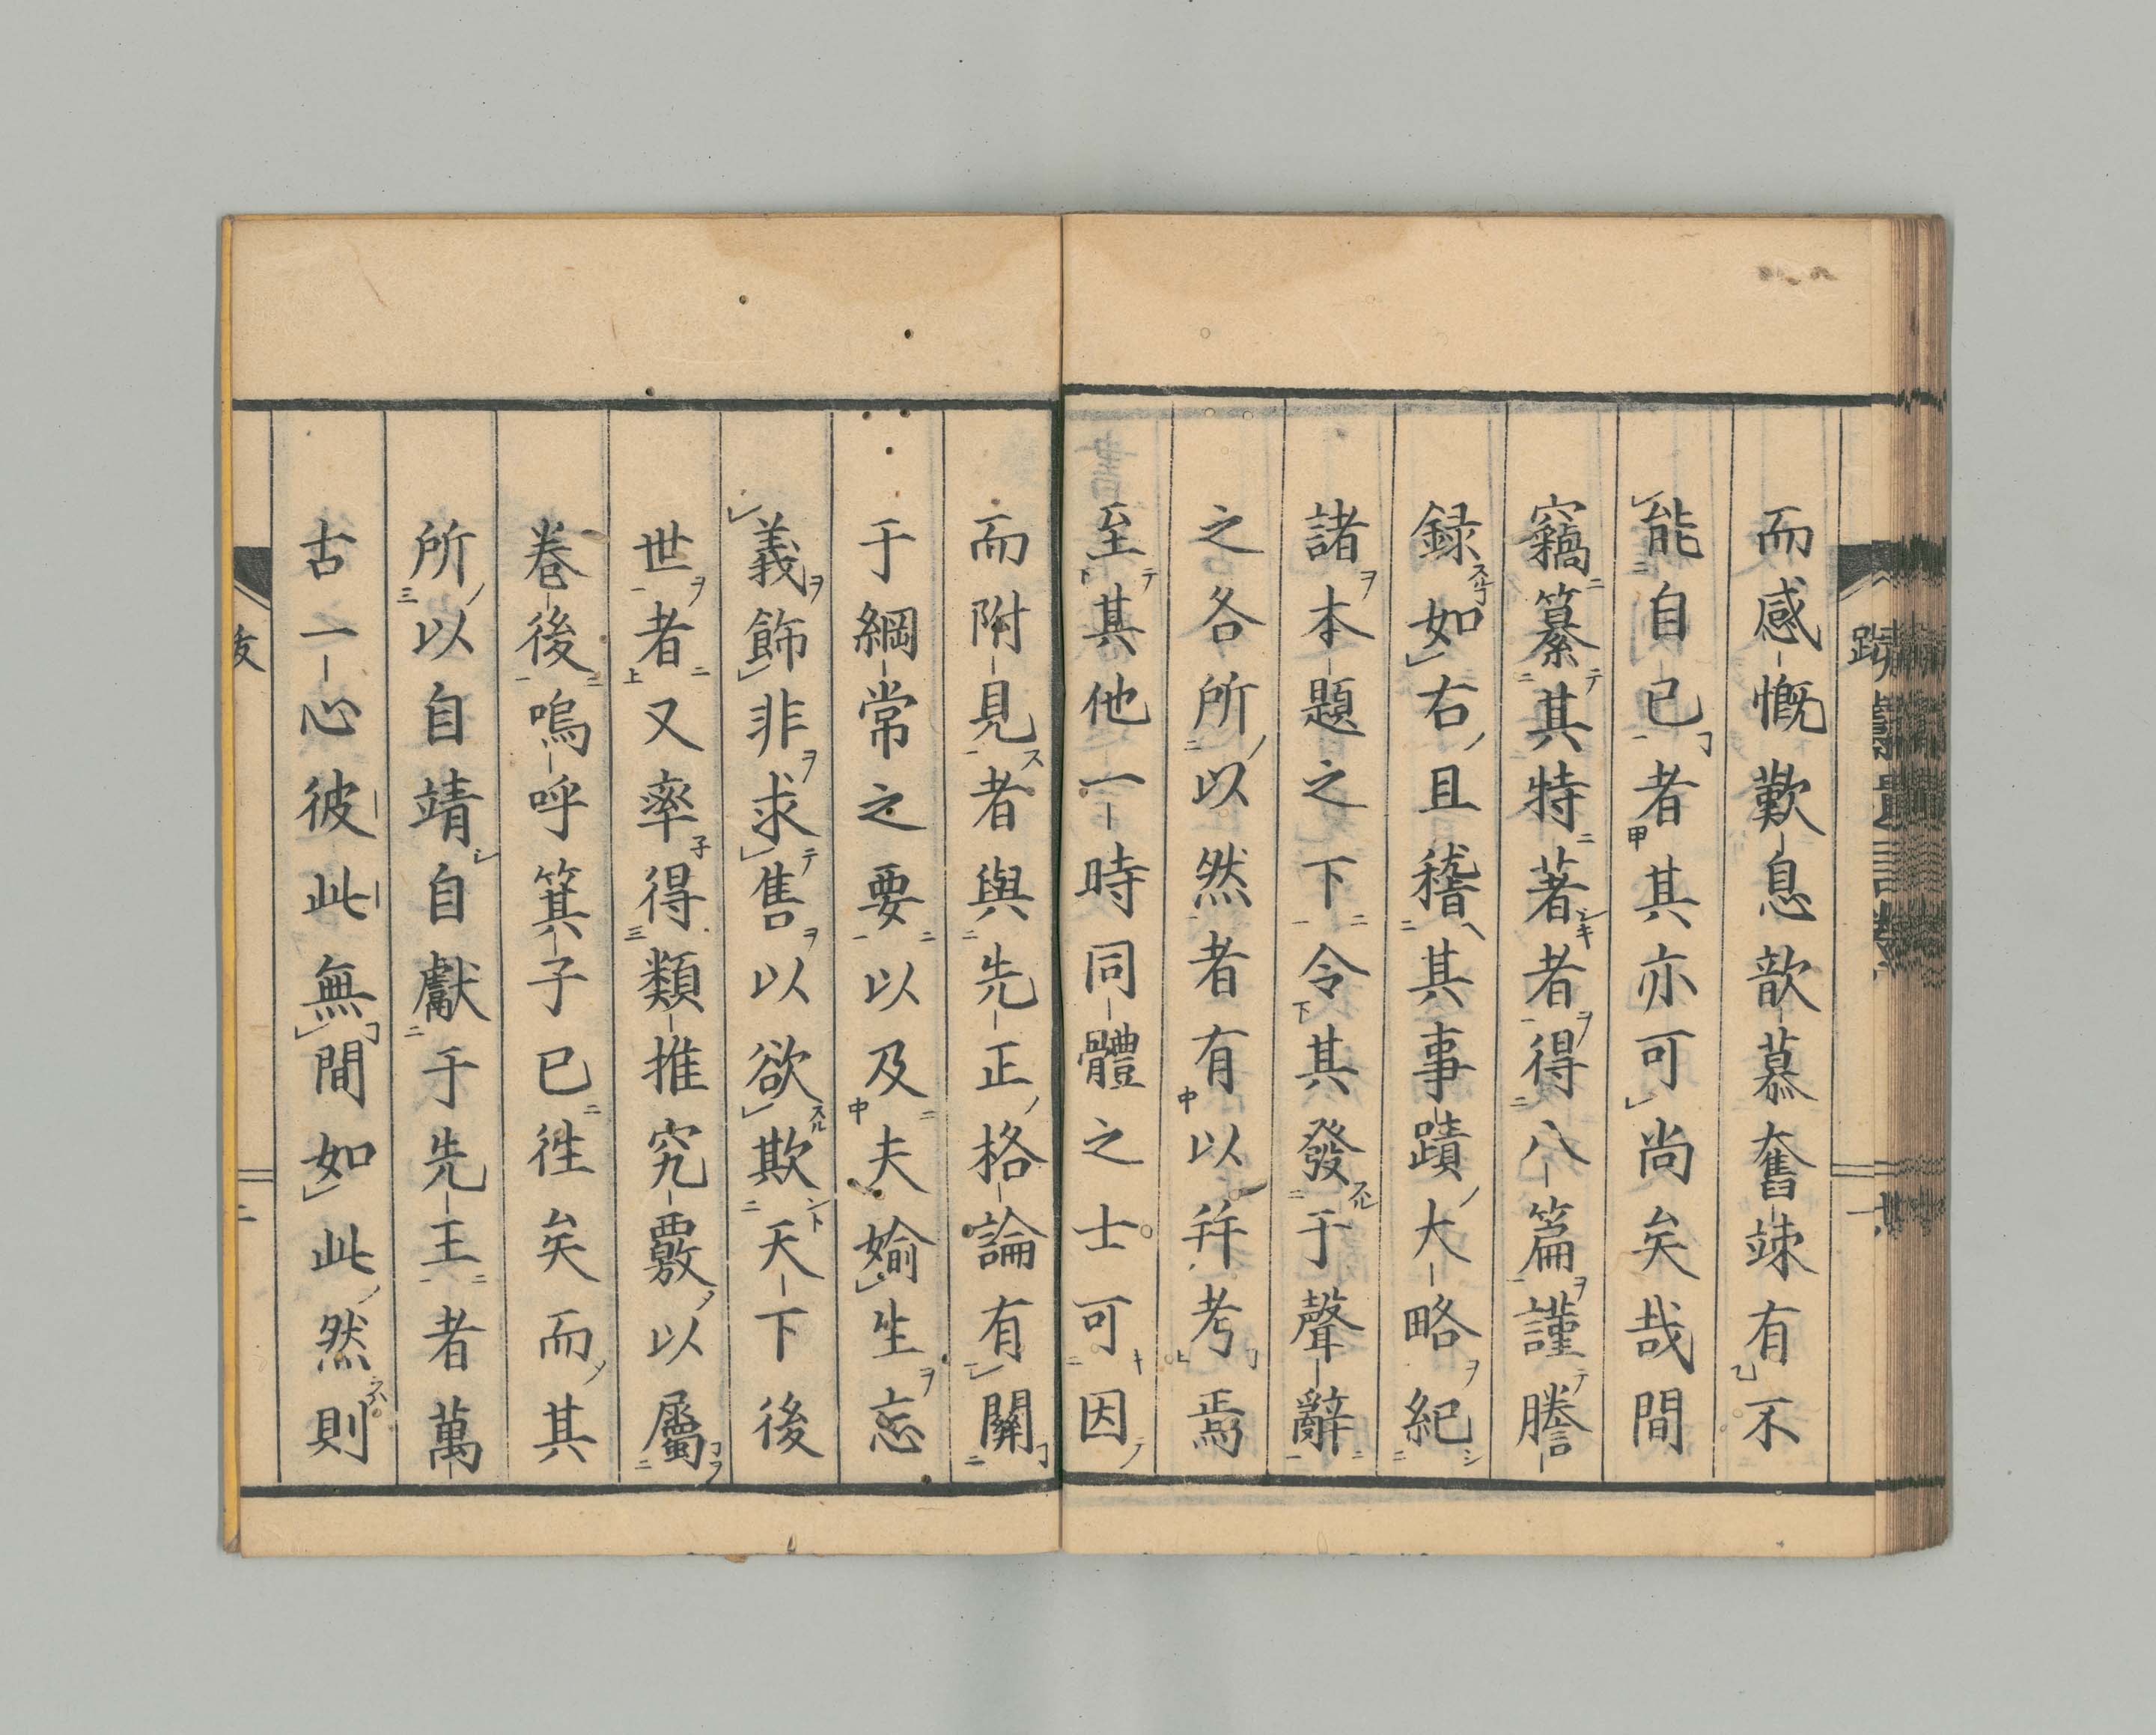 而感慨歎息歆慕奮竦有不
能自已者其亦可尚矣哉間
竊纂其特著者得八篇謹謄
録如右且稽其事蹟大略紀
諸本題之下令其發于聲辭
之各所以然者有以并考焉
至其他一時同體之士可因
而附見者與先正格論有關
于綱常之要以及夫媮生忘
義飾非求售以欲欺天下後
世者又率得類推究覈以屬
巻後嗚呼箕子已徃矣而其
所以自靖自獻于先王者萬
古一心彼此無間如此然則